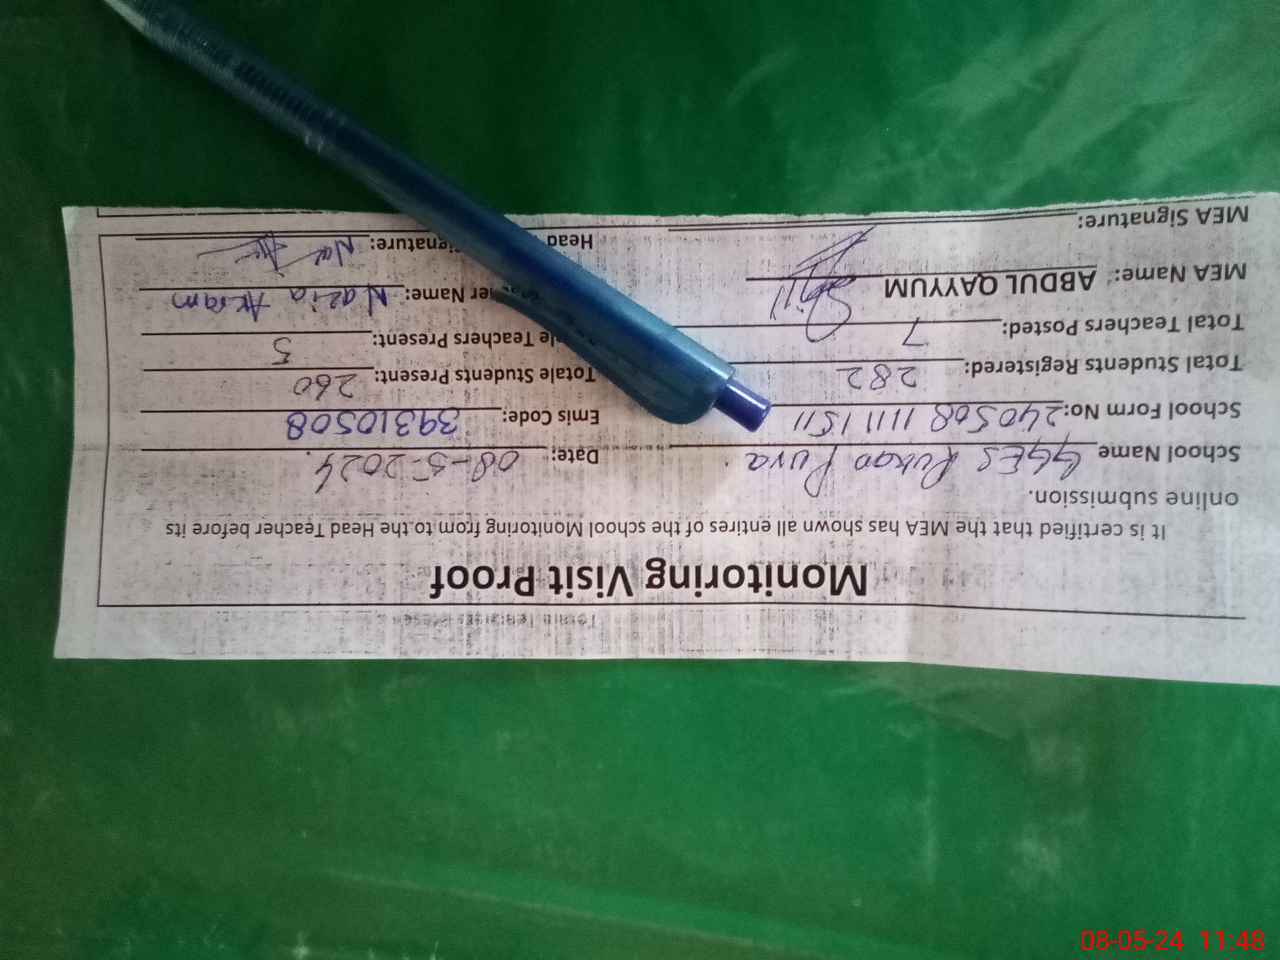 Monitoring Visit Proof
It is certified that the MEA has shown all entires of the school Monitoring from to the Head Teacher before its
online submission.
School Name GGES Pura Date: 08-5-2024
School Form No: 240508 1111 1511 Emis Code: 39310508
Total Students Registered: 282 Totale Students Present: 260
Total Teachers Posted: 7 Teachers Present: 5
MEA Name: ABDUL QAYYUM Name: Nazia Akram
MEA Signature: Head
08-05-24 11:48